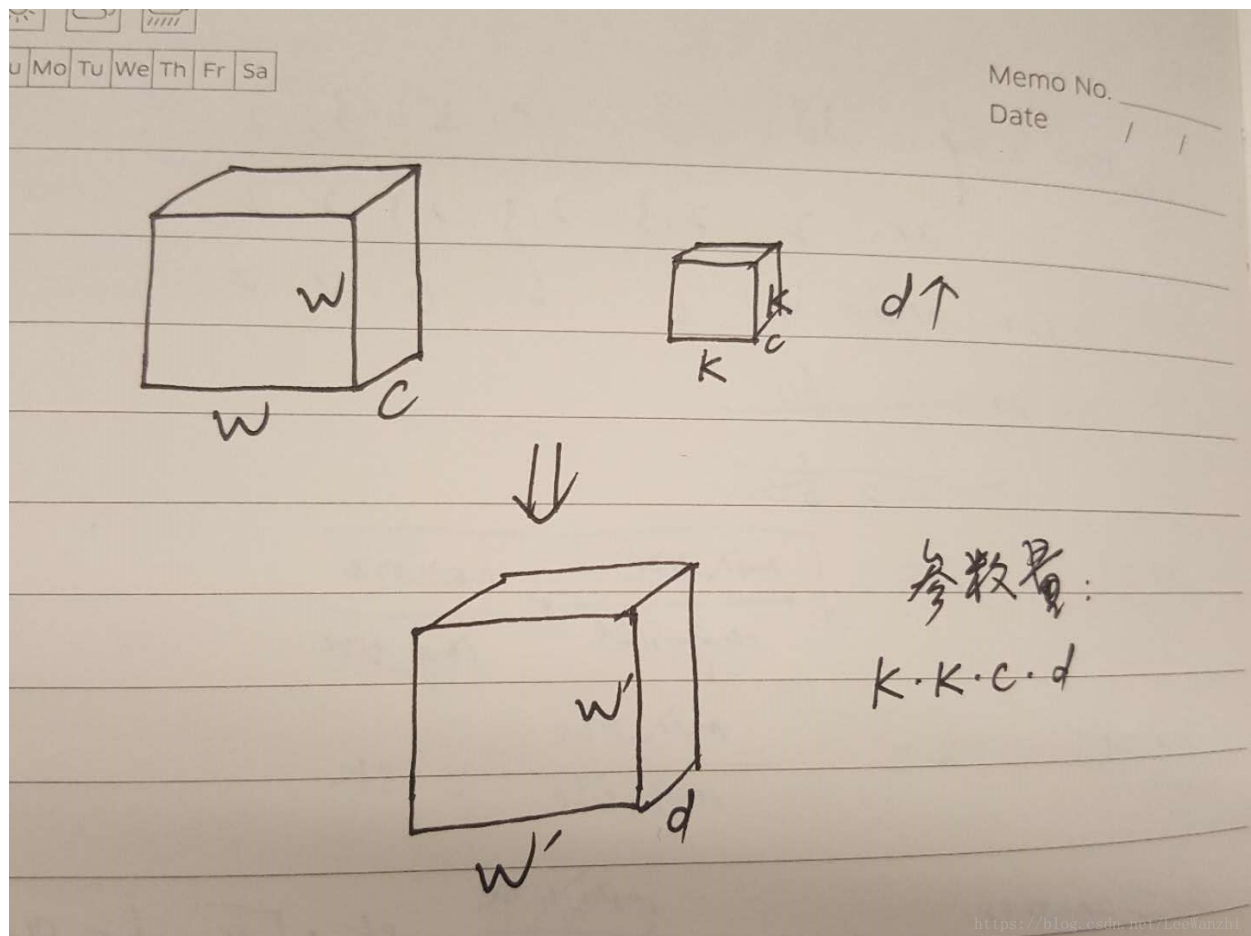 u Mo Tu We Th Fr Sa
Memo No.
Date / /
W
W
C
K
K
c
d↑
⇓
W'
W'
d
参数量:
K·K·c·d
https://blog.csdn.net/LeeWanzhi